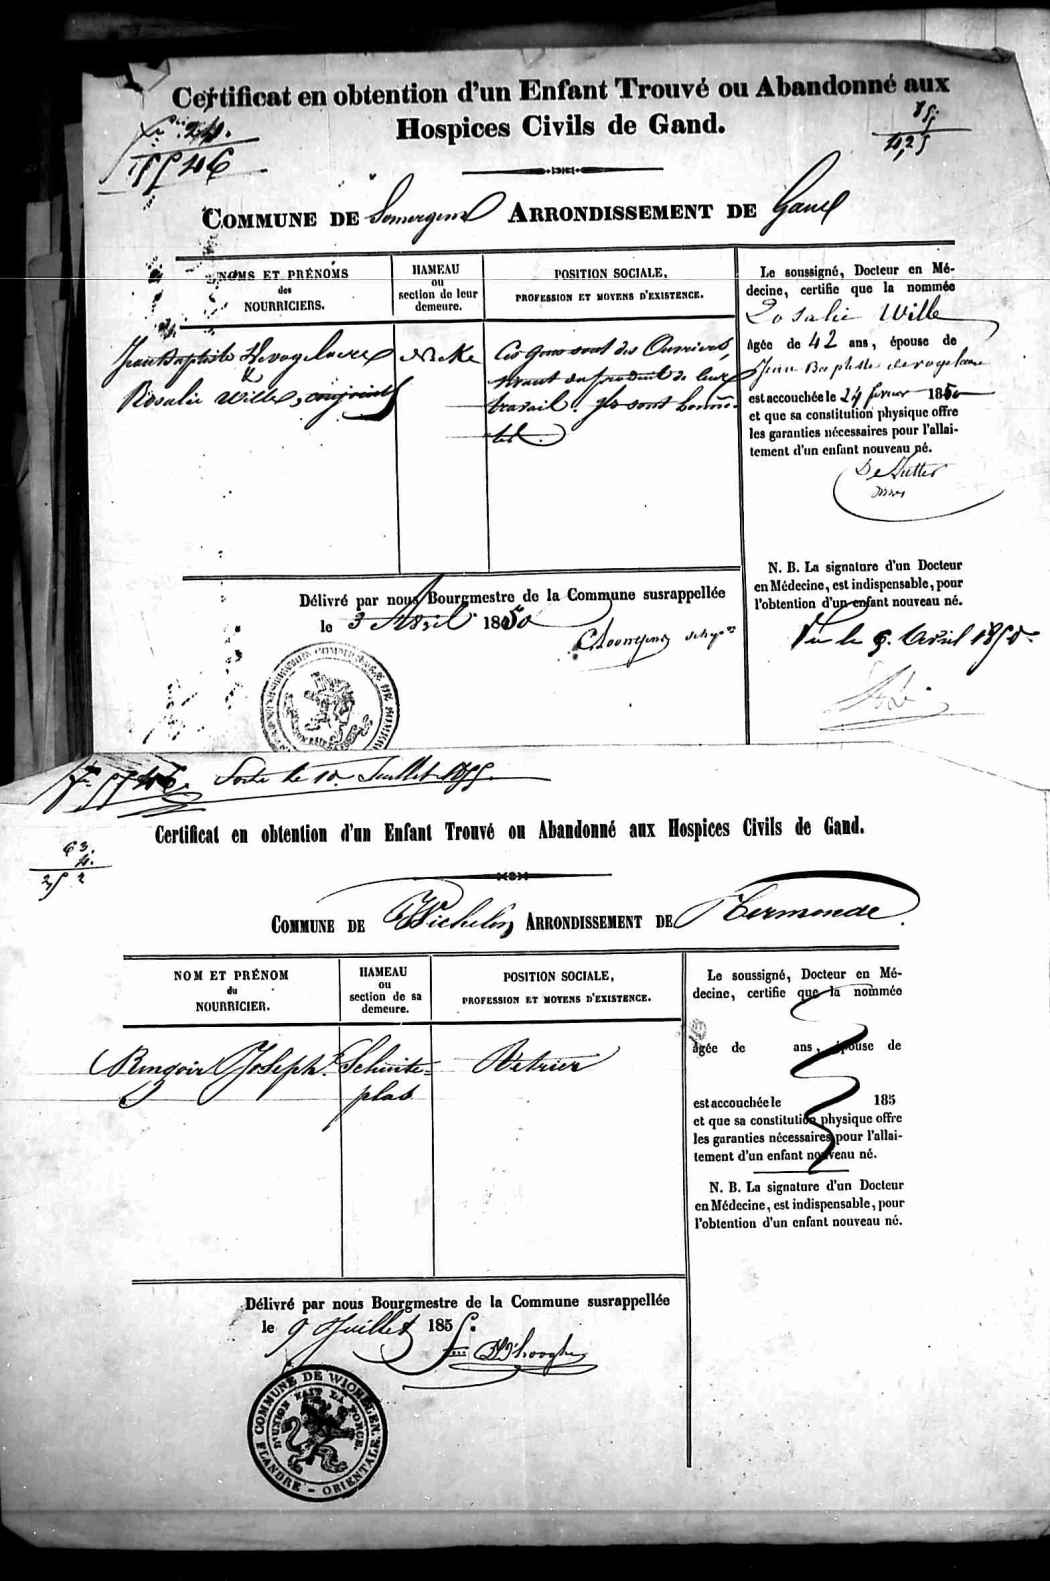 Certificat en obtention d'un Enfant Trouvé ou Abandonné aux
Hospices Civils de Gand.
24.
5546
15.
4,25
COMMUNE DE Somergem ARRONDISSEMENT DE Gand
NOMS ET PRÉNOMS
des
NOURRICIERS.
HAMEAU
ou
section de leur
demeure.
POSITION SOCIALE,
PROFESSION ET MOYENS D'EXISTENCE.
Jean Baptiste
Rosalie Wille, conjoints
Ces gens sont des Ouvriers,
vivant du produit de leur
travail. Ils sont honnê-
tes.
Le soussigné, Docteur en Mé-
decine, certifie que la nommée
Rosalie Wille
âgée de 42 ans, épouse de
Jean Baptiste
est accouchée le 24 février 1850
et que sa constitution physique offre
les garanties nécessaires pour l'allai-
tement d'un enfant nouveau né.
N. B. La signature d'un Docteur
en Médecine, est indispensable, pour
l'obtention d'un enfant nouveau né.
Vu le 5 Avril 1850.
Délivré par nous Bourgmestre de la Commune susrappellée
le 3 Avril 1850
5546 Sorti le 10 Juillet 1855.
Certificat en obtention d'un Enfant Trouvé ou Abandonné aux Hospices Civils de Gand.
63.
4.
252
COMMUNE DE Wichelen ARRONDISSEMENT DE Termonde
NOM ET PRÉNOM
du
NOURRICIER.
HAMEAU
ou
section de sa
demeure.
POSITION SOCIALE,
PROFESSION ET MOYENS D'EXISTENCE.
Ringoir Joseph
Le soussigné, Docteur en Mé-
decine, certifie que la nommée
âgée de ans, épouse de
est accouchée le 185
et que sa constitution physique offre
les garanties nécessaires pour l'allai-
tement d'un enfant nouveau né.
N. B. La signature d'un Docteur
en Médecine, est indispensable, pour
l'obtention d'un enfant nouveau né.
Délivré par nous Bourgmestre de la Commune susrappellée
le 9 Juillet 1855.
D'hooghe
COMMUNE DE WICHELEN
FLANDRE - ORIENTALE
L'UNION FAIT LA FORCE